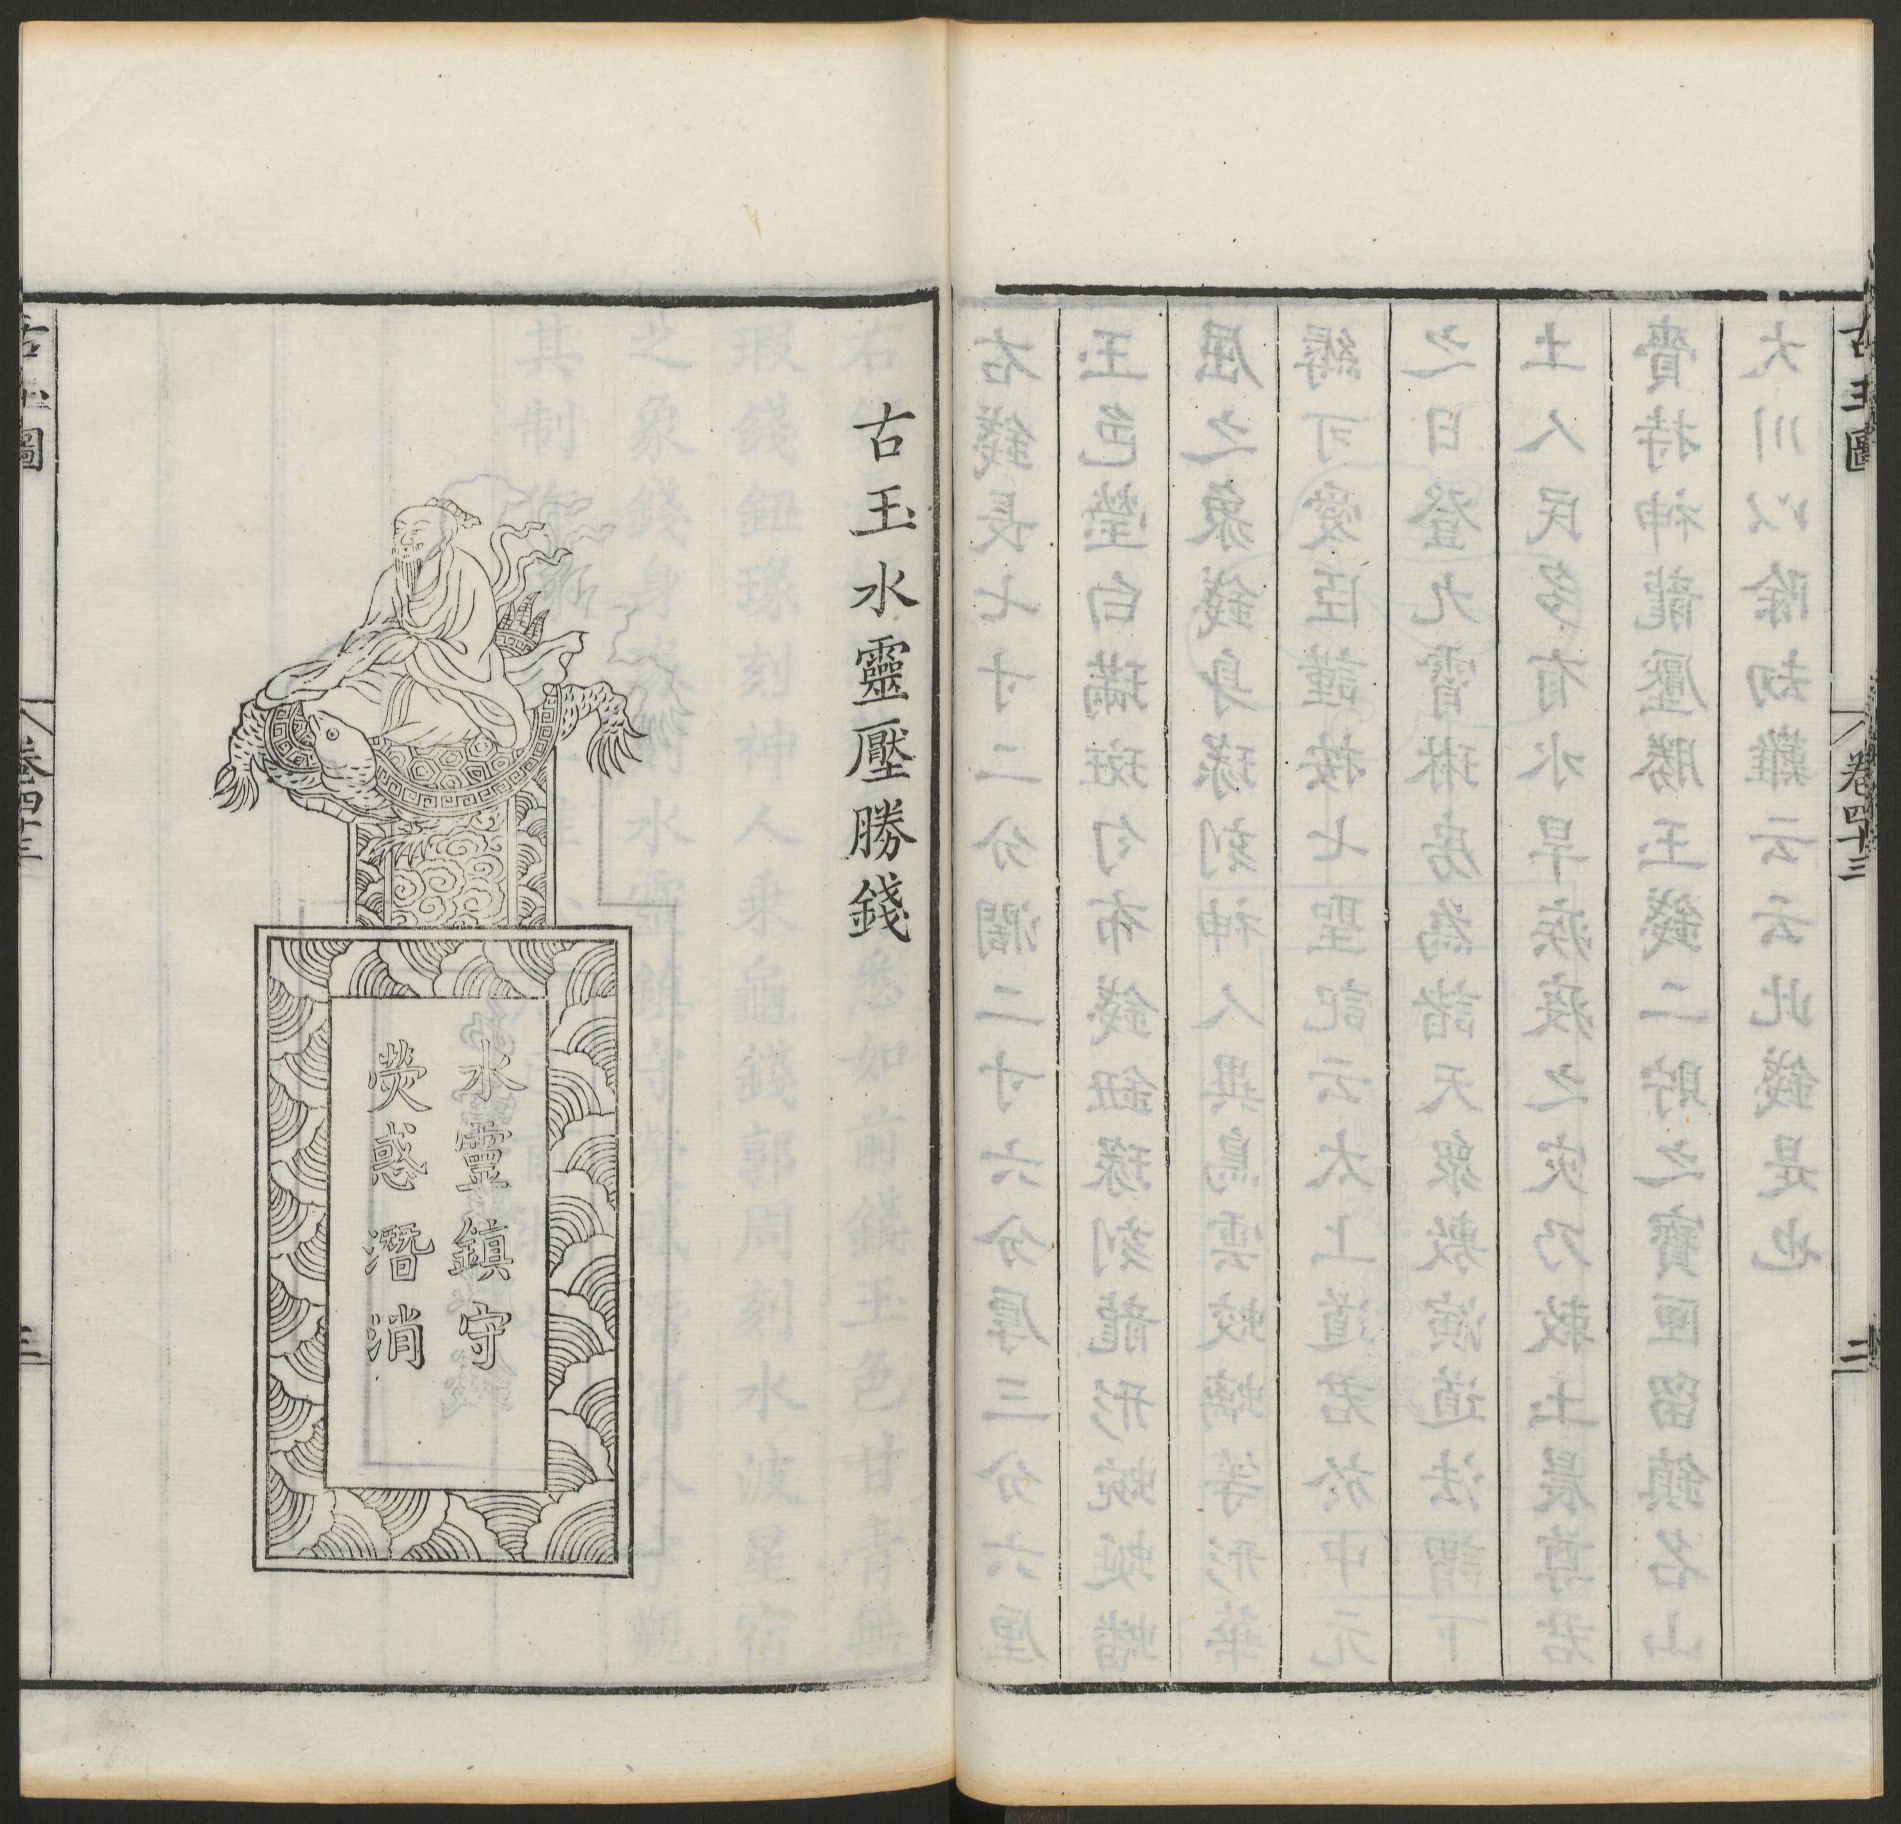 古玉圖
卷四十三
二
右錢長七寸二分濶二寸六分厚三分六厘
玉色瑩白璊斑勻布錢鈕瑑刻龍形蜿蜒蟠
屈之象錢身瑑刻神人異鳥雲蛟螭等形華
縟可愛臣謹按七聖記云太上道君於中元
之日登九霄琳房為諸天眾敷演道法謂下
土人民多有水旱疾疫之灾乃敕土晨尊君
賚持神龍壓勝玉錢二貯之寶匣留鎮名山
大川以除劫難云云此錢是也
古玉水靈壓勝錢
水靈鎮守
熒惑潛消
古玉圖
卷四十三
三